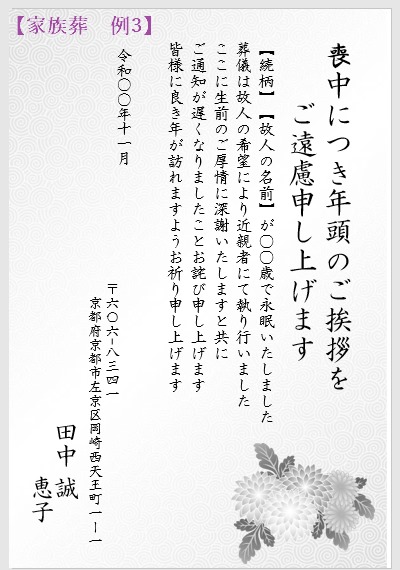 【家族葬　例3】
喪中につき年頭のご挨拶を
ご遠慮申し上げます
【続柄】【故人の名前】が〇〇歳で永眠いたしました
葬儀は故人の希望により近親者にて執り行いました
ここに生前のご厚情に深謝いたしますと共に
ご通知が遅くなりましたことお詫び申し上げます
皆様に良き年が訪れますようお祈り申し上げます
令和〇〇年十一月
〒六〇六-八三四一
京都府京都市左京区岡崎西天王町一-一
田中 誠
恵子